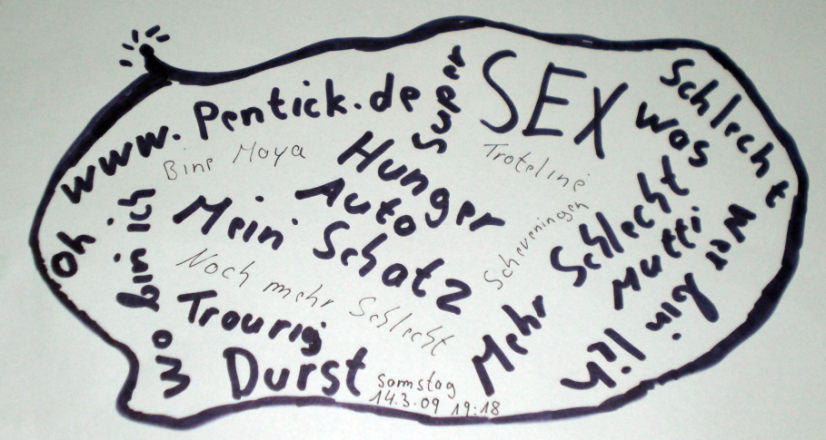 oh
www.Pentick.de
super
SEX
Schlecht
was
Bine Maya
Hunger
Troteline
Auto
Mein Schatz
wo bin ich
Scheveningen
Mehr Schlecht
Mutti
wer bin ich
Noch mehr Schlecht
Traurig
Durst
Samstag
14.3.09 19:18